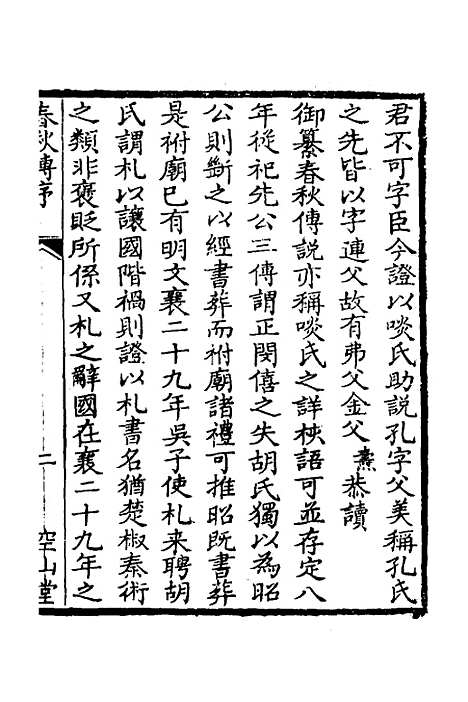 君不可字臣今證以啖氏助説孔字父美稱孔氏
之先皆以字連父故有弗父金父燾恭讀
御纂春秋傳説亦稱啖氏之詳梜語可並存定八
年從祀先公三傳謂正閔僖之失胡氏獨以為昭
公則斷之以經書葬而祔廟諸禮可推昭既書葬
是祔廟已有明文襄二十九年吳子使札来聘胡
氏謂札以讓國階禍則證以札書名猶楚椒秦術
之類非褒貶所係又札之辭國在襄二十九年之
春秋傳序
二
空山堂